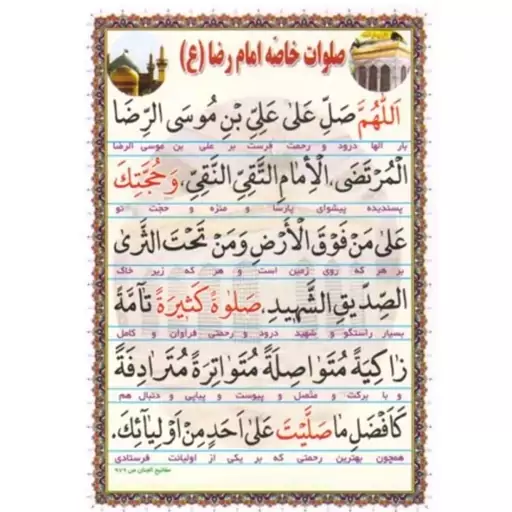 صلوات خاصه امام رضا (ع)
اَللّٰهُمَّ صَلِّ عَلیٰ عَلِیِّ بْنِ مُوسَی الرِّضَا
بار الها درود و رحمت فرست بر علی بن موسی الرضا
الْمُرْتَضَی، الْأِمَامِ التَّقِیِّ النَّقِیِّ، وَحُجَّتِكَ
پسندیده پیشوای پارسا و منزه و حجّت تو
عَلیٰ مَنْ فَوْقَ الْأَرْضِ وَمَنْ تَحْتَ الثَّریٰ
بر هر که روی زمین است و هر که زیر خاک
الصِّدّیقِ الشَّهیدِ، صَلوٰةً كَثیرَةً تٰآمَّةً
بسیار راستگو و شهید درود و رحمتی فراوان و کامل
زٰاكِیَةً مُتَوٰاصِلَةً مُتَوٰاتِرَةً مُتَرٰادِفَةً
و با برکت و متّصل و پیوست و پیاپی و دنبال هم
كَأَفْضَلِ مٰا صَلَّیْتَ عَلیٰ اَحَدٍ مِنْ اَوْلِیٰآئِكَ.
همچون بهترین رحمتی که بر یکی از اولیائت فرستادی
مفاتیح الجنان ص ۹۷۹